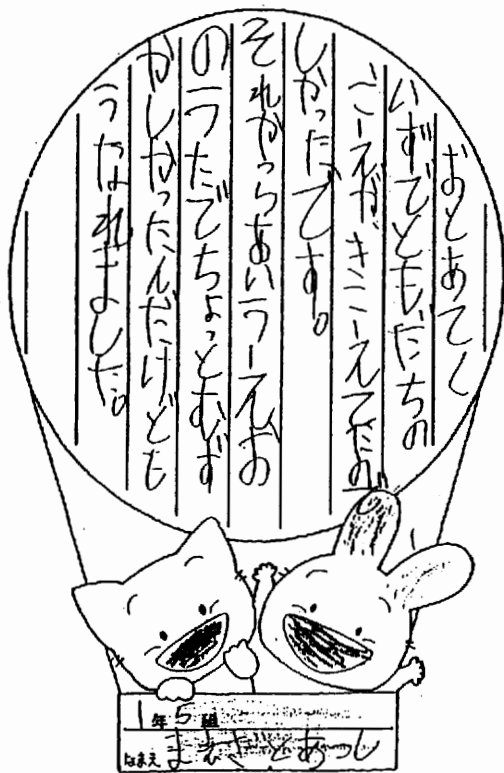 おとあてく
いずでともだちの
こーえがきこーえてたの
しかったです。
それからあいうーえお
のうたでちょっとむず
かしかったんだけども
うなれました。
1年5組
なまえ まえざとあつし